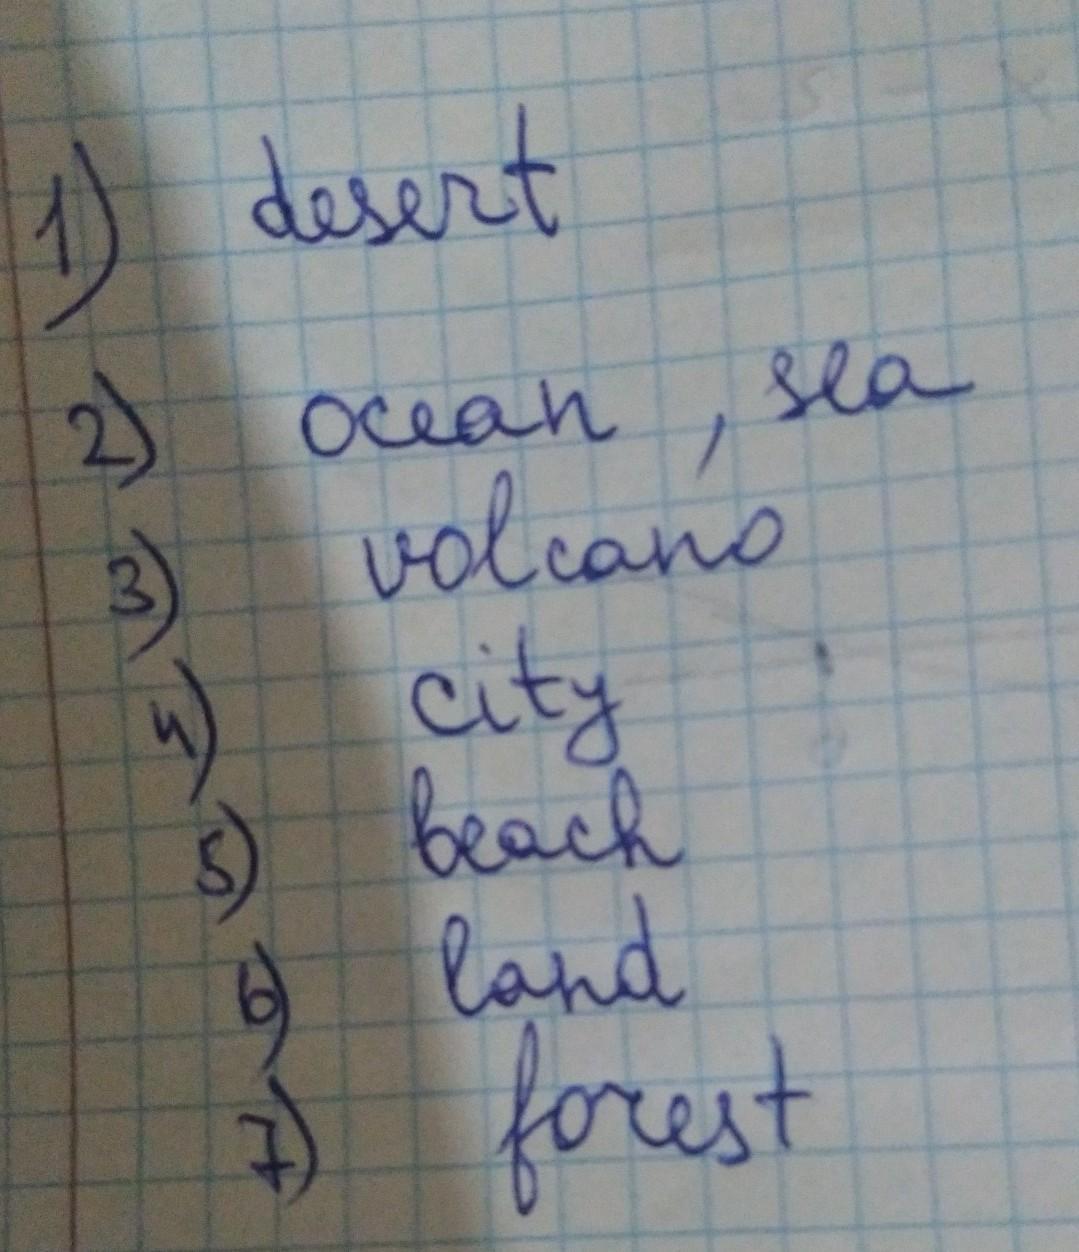 1) desert
2) ocean, sea
3) volcano
4) city
5) beach
6) land
7) forest